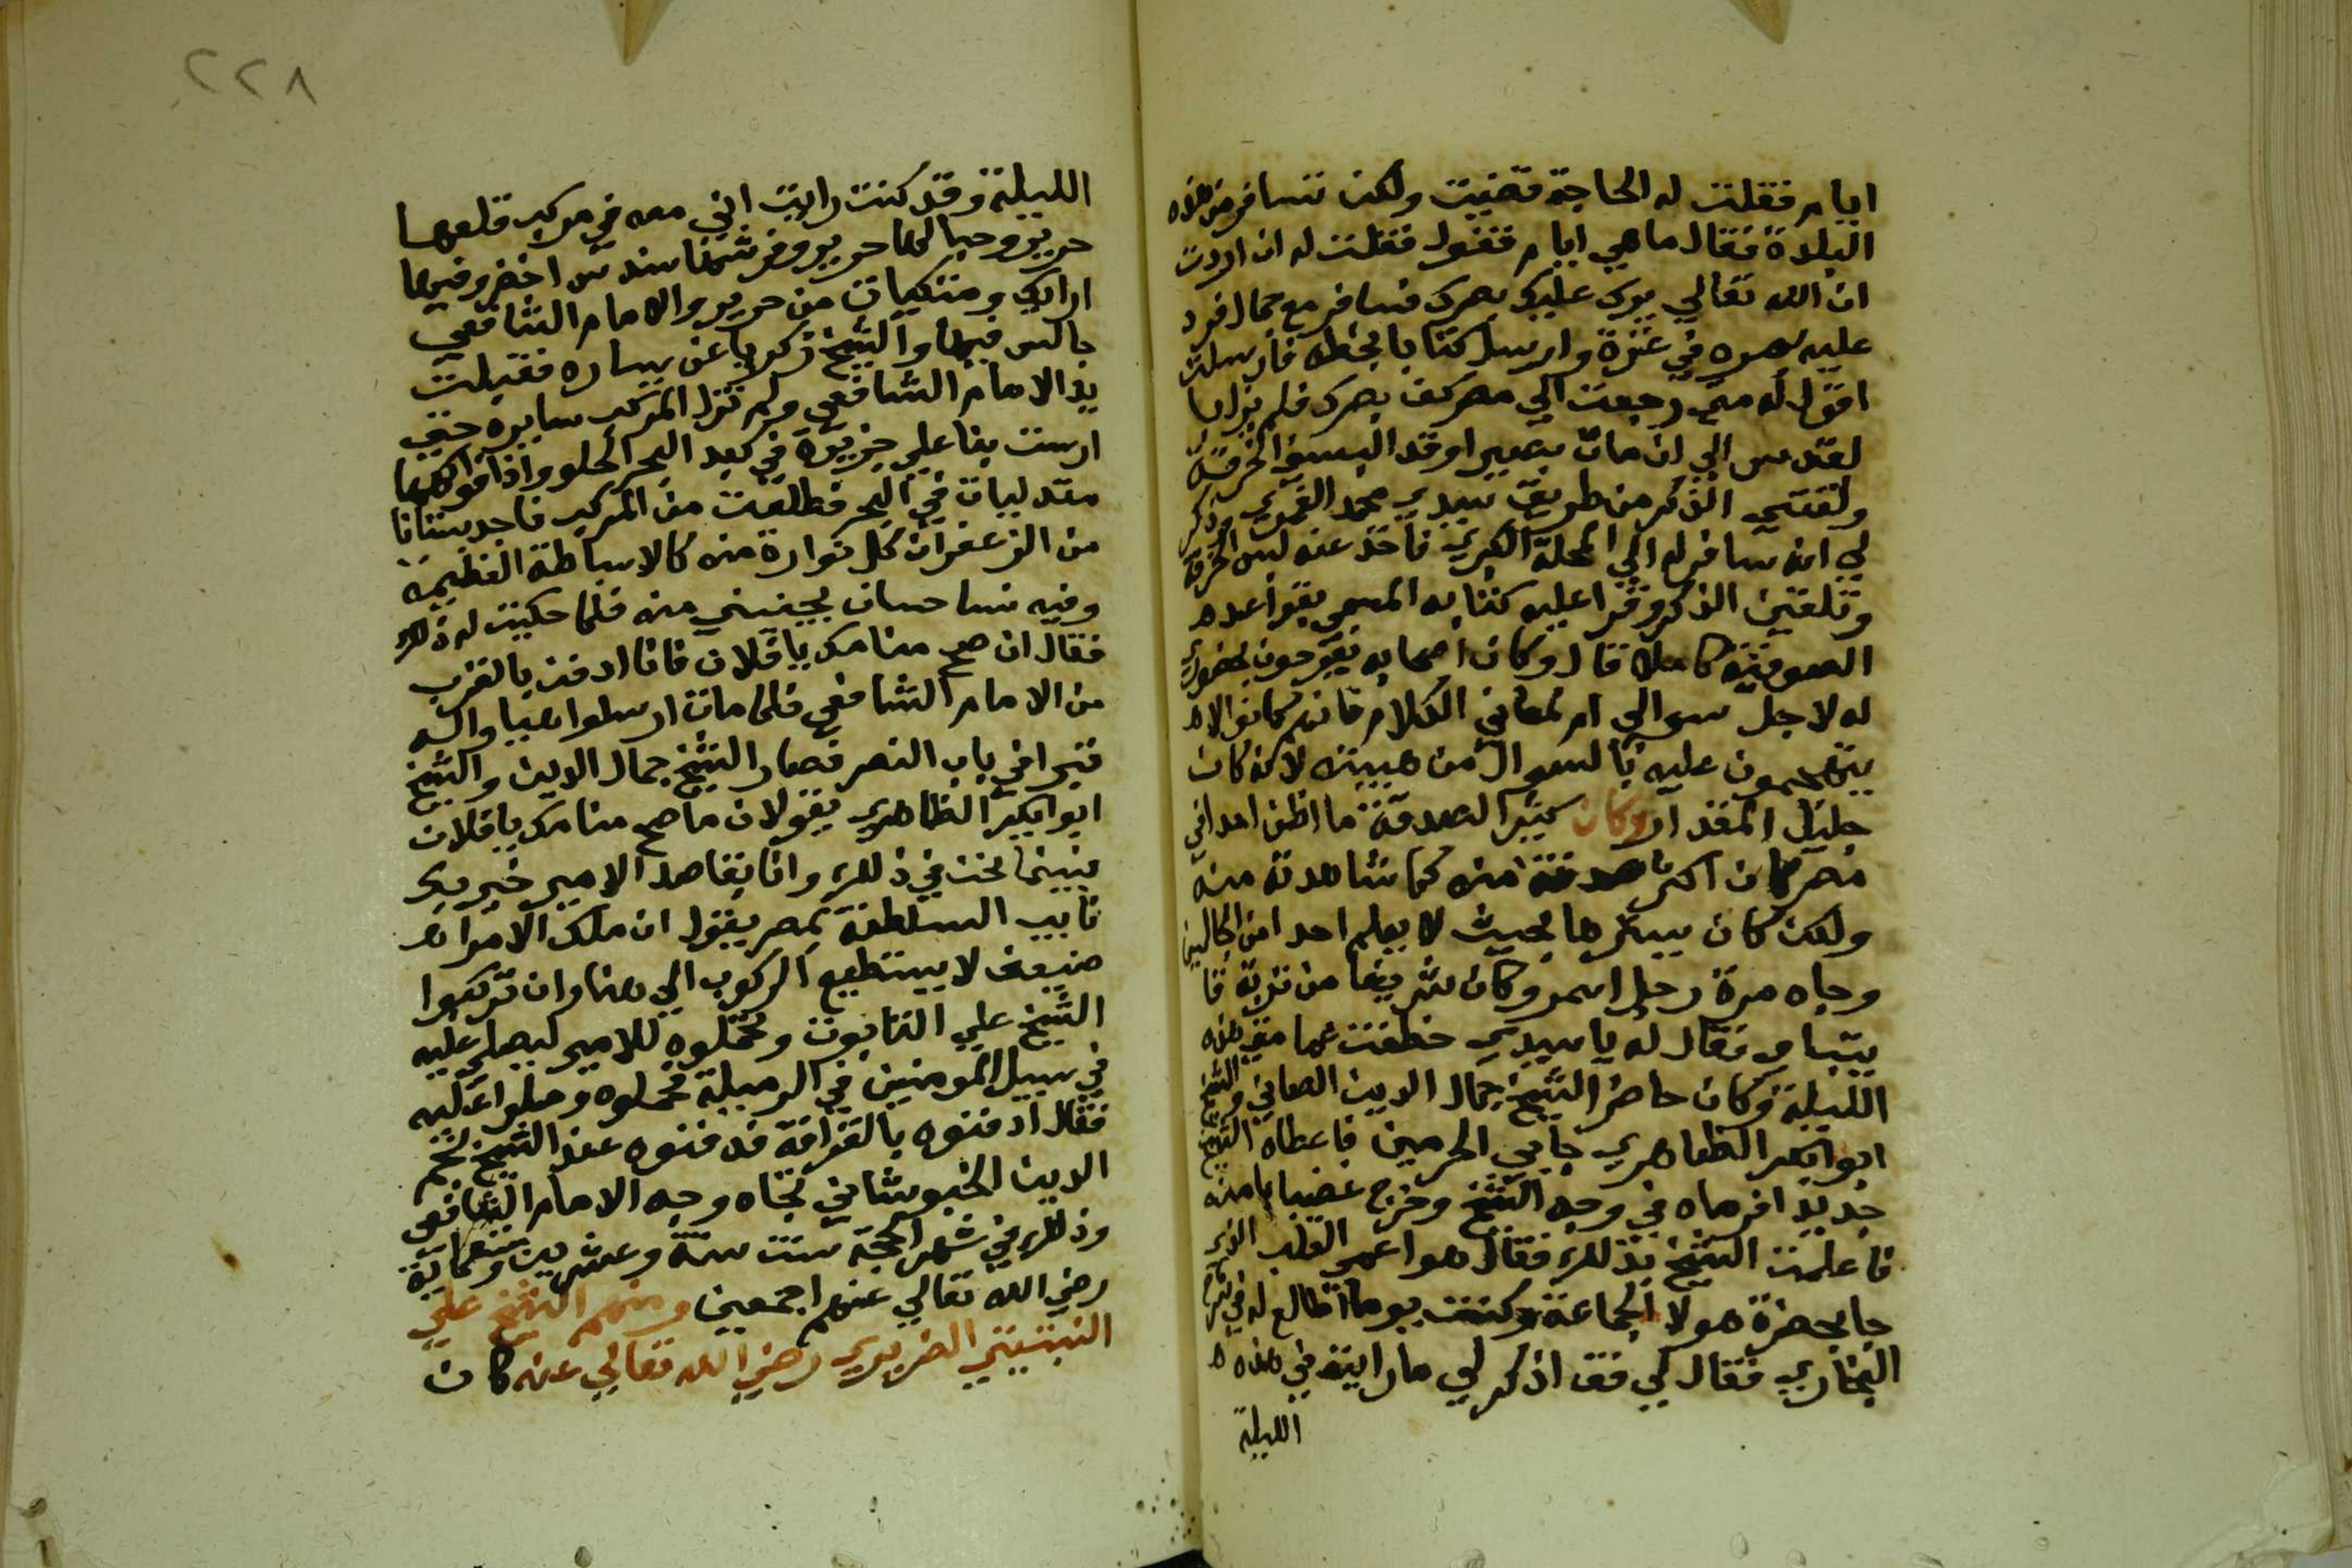 ايام فقلت له الحاجة قضيت ولكن تسافر من هذه
البلدة فقال ما هي ايام فنفول فقلت له ان اردت
ان الله تعالي يرد عليك بصرك فسافر مع جمال فرد
عليه بصره في غزة وارسل كتابا بخطه فارسلت
اقول له متي رجعت الي مصر كف بصرك فلم يزل با
لقدس الي ان مات بصيرا وقد البسني الخرقة
ولقنني الذكر من طريق سيدي محمد الغمري وذكر
لي انه سافر له الي المحلة الكبري فاخذ عنه لبس الخرقة
وتلقين الذكر وقرا عليه كتابه المسمي بقواعد
الصوفية كاملا قال وكان اصحابه يفرحون بحضوري
له لاجل سوالي ام لمعاني الكلام فانهم كانوا لا
يتهجمون عليه بالسوال من هيبته لانه كان
جليل المقدار وكان كثير الصدقة ما اظن احدا في
مصر كان اكثر صدقة منه كما شاهدته منه
ولكن كان يسترها بحيث لا يعلم احد من الجالسين
وجاه مرة رجل اسمر وكان شريفا من تربة قا
يتباي فقال له يا سيدي خطفت عمامتي هذه
الليلة وكان حاضر الشيخ جمال الدين الصاني والشيخ
ابوا بكر الظاهري جابي الحرمين فاعطاه الشيخ
جديدا فرماه في وجه الشيخ وخرج غضبانا منه
فاعلمت الشيخ بذلك فقال هوا عمي القلب الذي
جا بحضرة هولا الجماعة وكنت يوما اطالع له في شرح
البخاري فقال لي قف اذكر لي ما رايته في هذه
الليلة
٢٢٨
الليلة وقد كنت رايت اني معه في مركب قلعها
حرير وحبالها حرير وفرشها سندس اخضر وفيها
ارايك ومتكيات من حرير والامام الشافعي
جالس فيها والشيخ زكريا عن يساره فقبلت
يد الامام الشافعي ولم تزل المركب سايره حتي
ارست بنا علي جزيرة في كبد البحر الحلو واذا فواكهها
متدليات في البحر فطلعت من المركب فاجد بستانا
من الزعفران كل نوارة منه كالاسباطة العظيمة
وفيه نسا حسان يجنين منه فلما حكيت له ذلك
فقال ان صح منامك يا فلان فانا ادفن بالقرب
من الامام الشافعي فلما مات ارسلوا هيا واله
قبرا في باب النصر فصار الشيخ جمال الدين والشيخ
ابوا بكر الظاهري يقولان ما صح منامك يا فلان
فبينما نحن في ذلك وانا بقاصد الامير خير بك
نايب السلطنة بمصر يقول ان ملك الامرا
ضعيف لا يستطيع الركوب الي هنا وان تركبوا
الشيخ علي التابوت وتحملوه للامير ليصلي عليه
في سبيل المومنين في الرميلة فحملوه وصلوا عليه
فقال ادفنوه بالقرافة فدفنوه عند الشيخ نجم
الدين الخبوشاني تجاه وجه الامام الشافعي
وذلك في شهر الحجة سنت ستة وعشرين وتسعماية
رضي الله تعالي عنهم اجمعين ومنهم الشيخ علي
النبتيتي الضريري رضي الله تعالي عنه كان